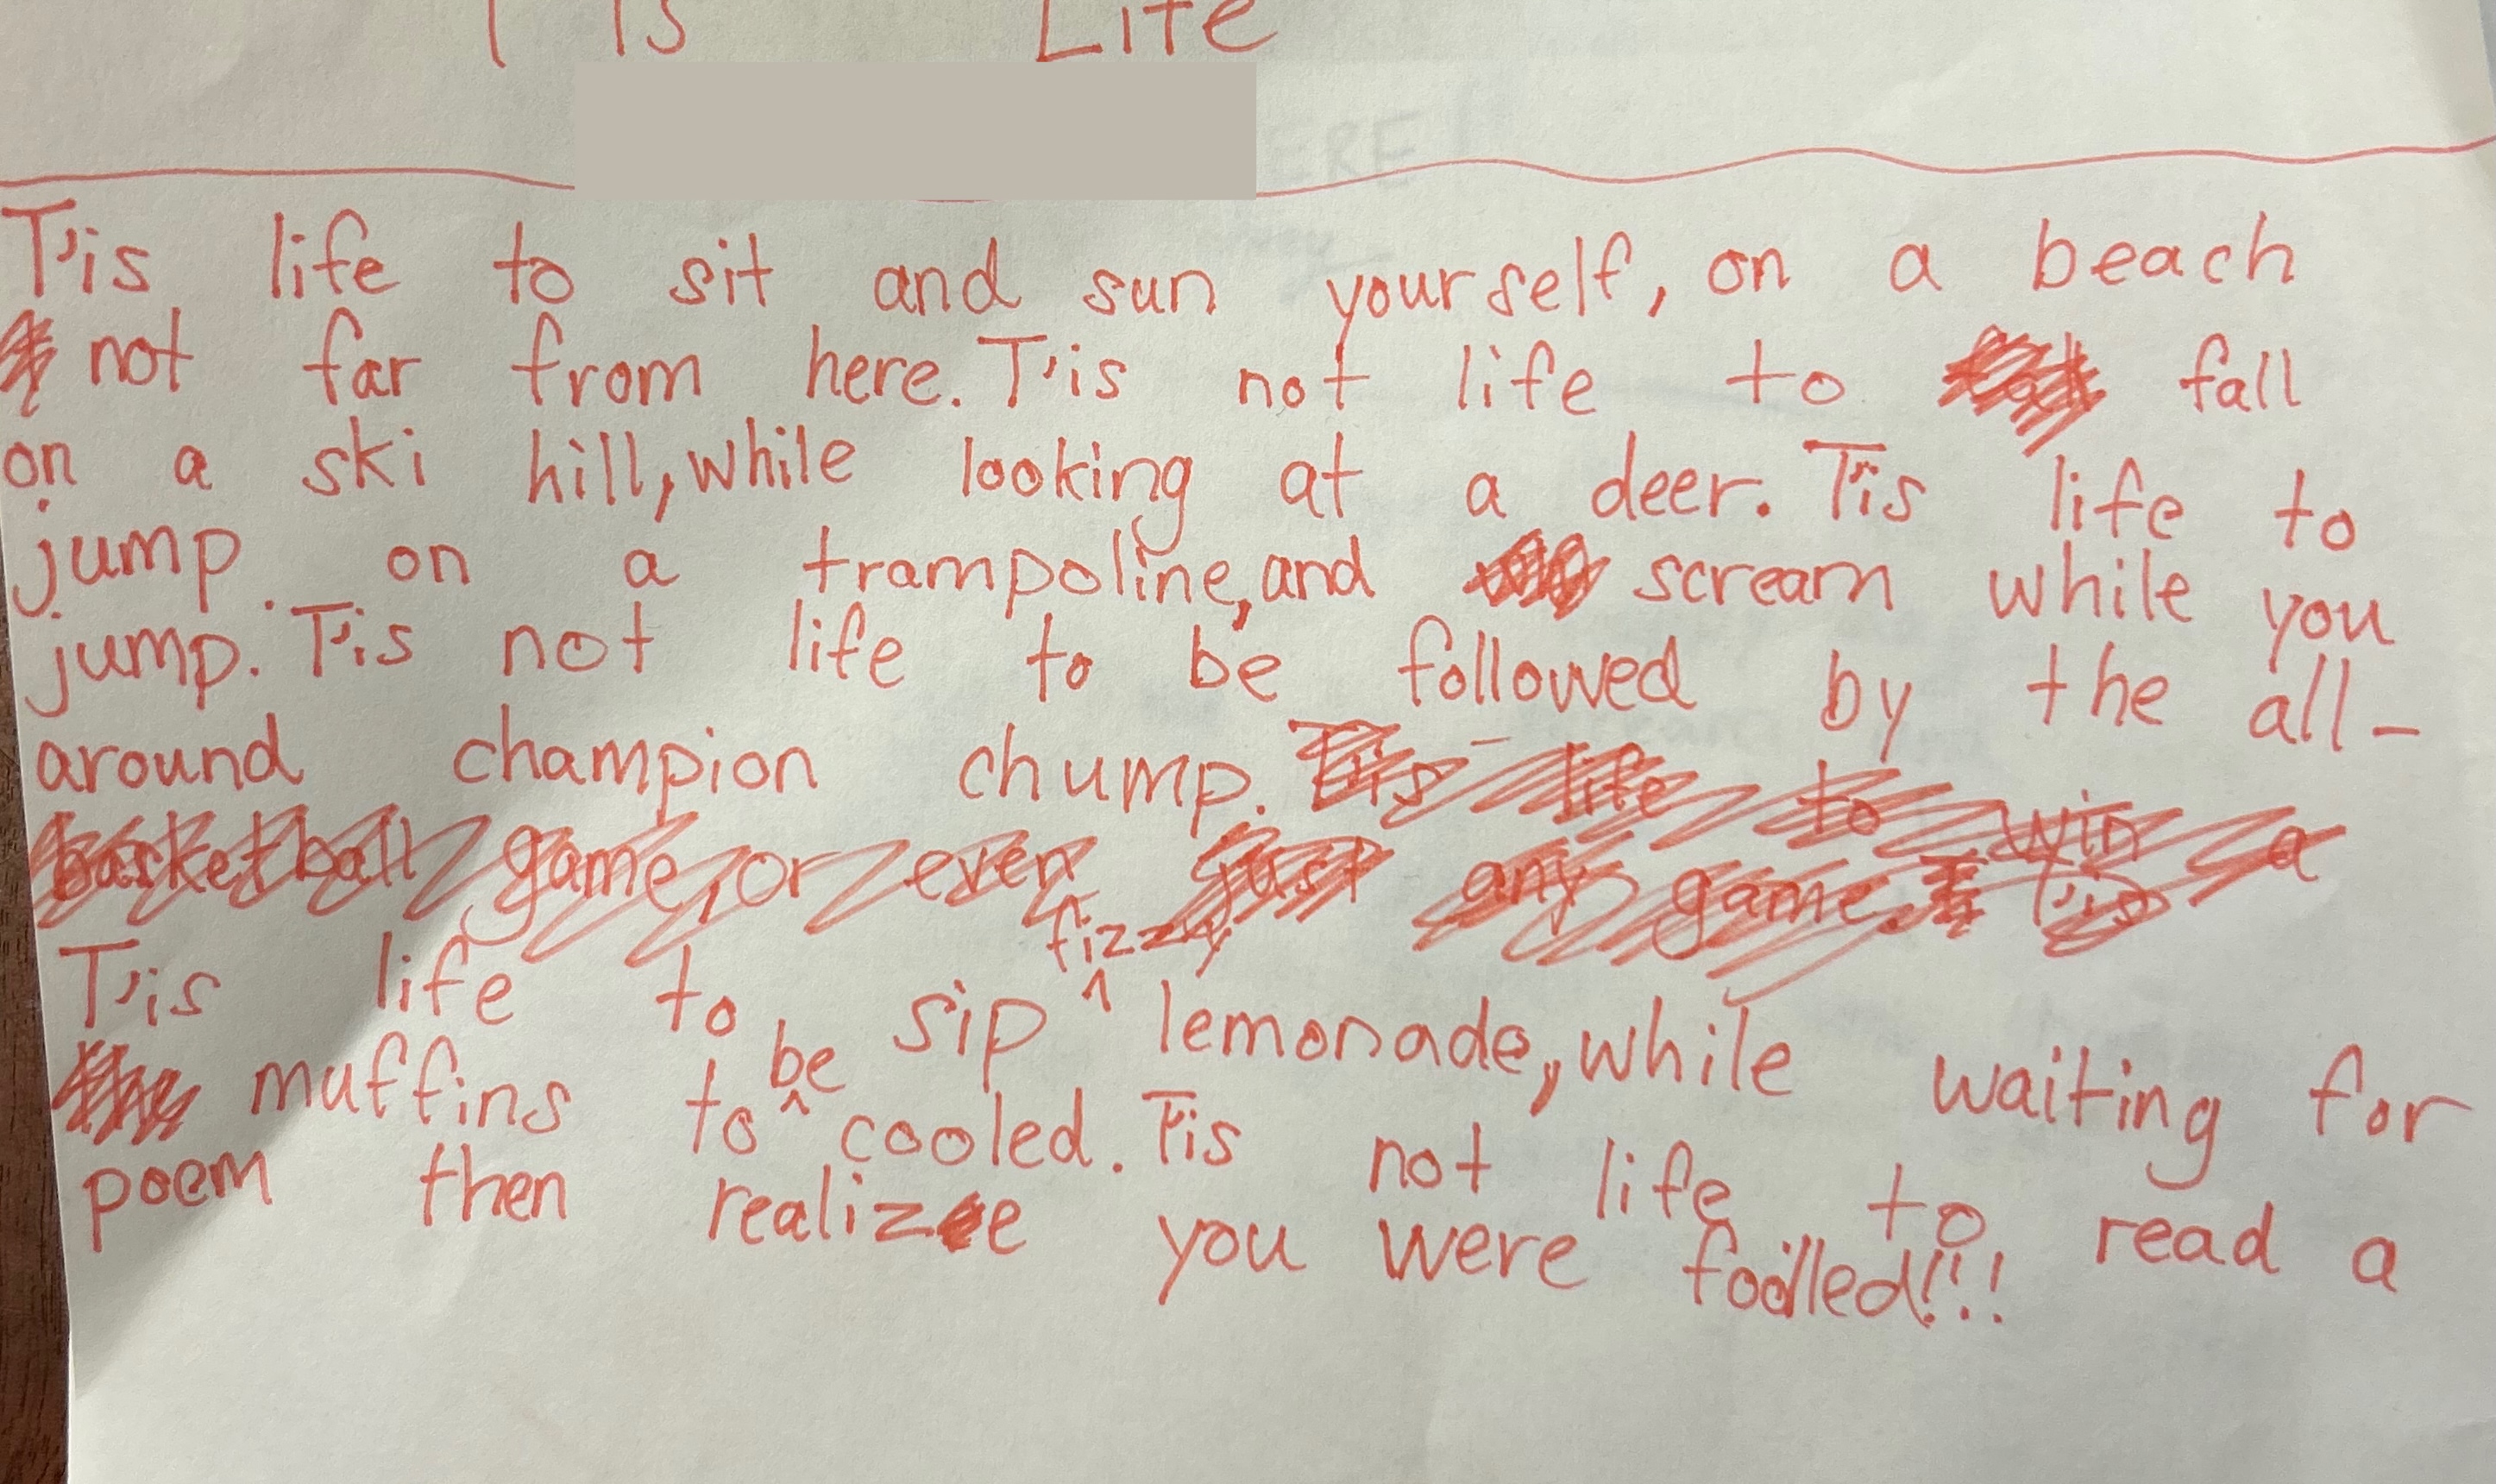 T'is Life
T'is life to sit and sun yourself, on a beach
not far from here. T'is not life to fall
on a ski hill, while looking at a deer. T'is life to
jump on a trampoline, and scream while you
jump. T'is not life to be followed by the all-
around champion chump. T'is life to win a
basketball game, or even just any game. T'is
T'is life to sip fizzy lemonade, while waiting for
muffins to be cooled. T'is not life to read a
poem then realize you were foolled!!!